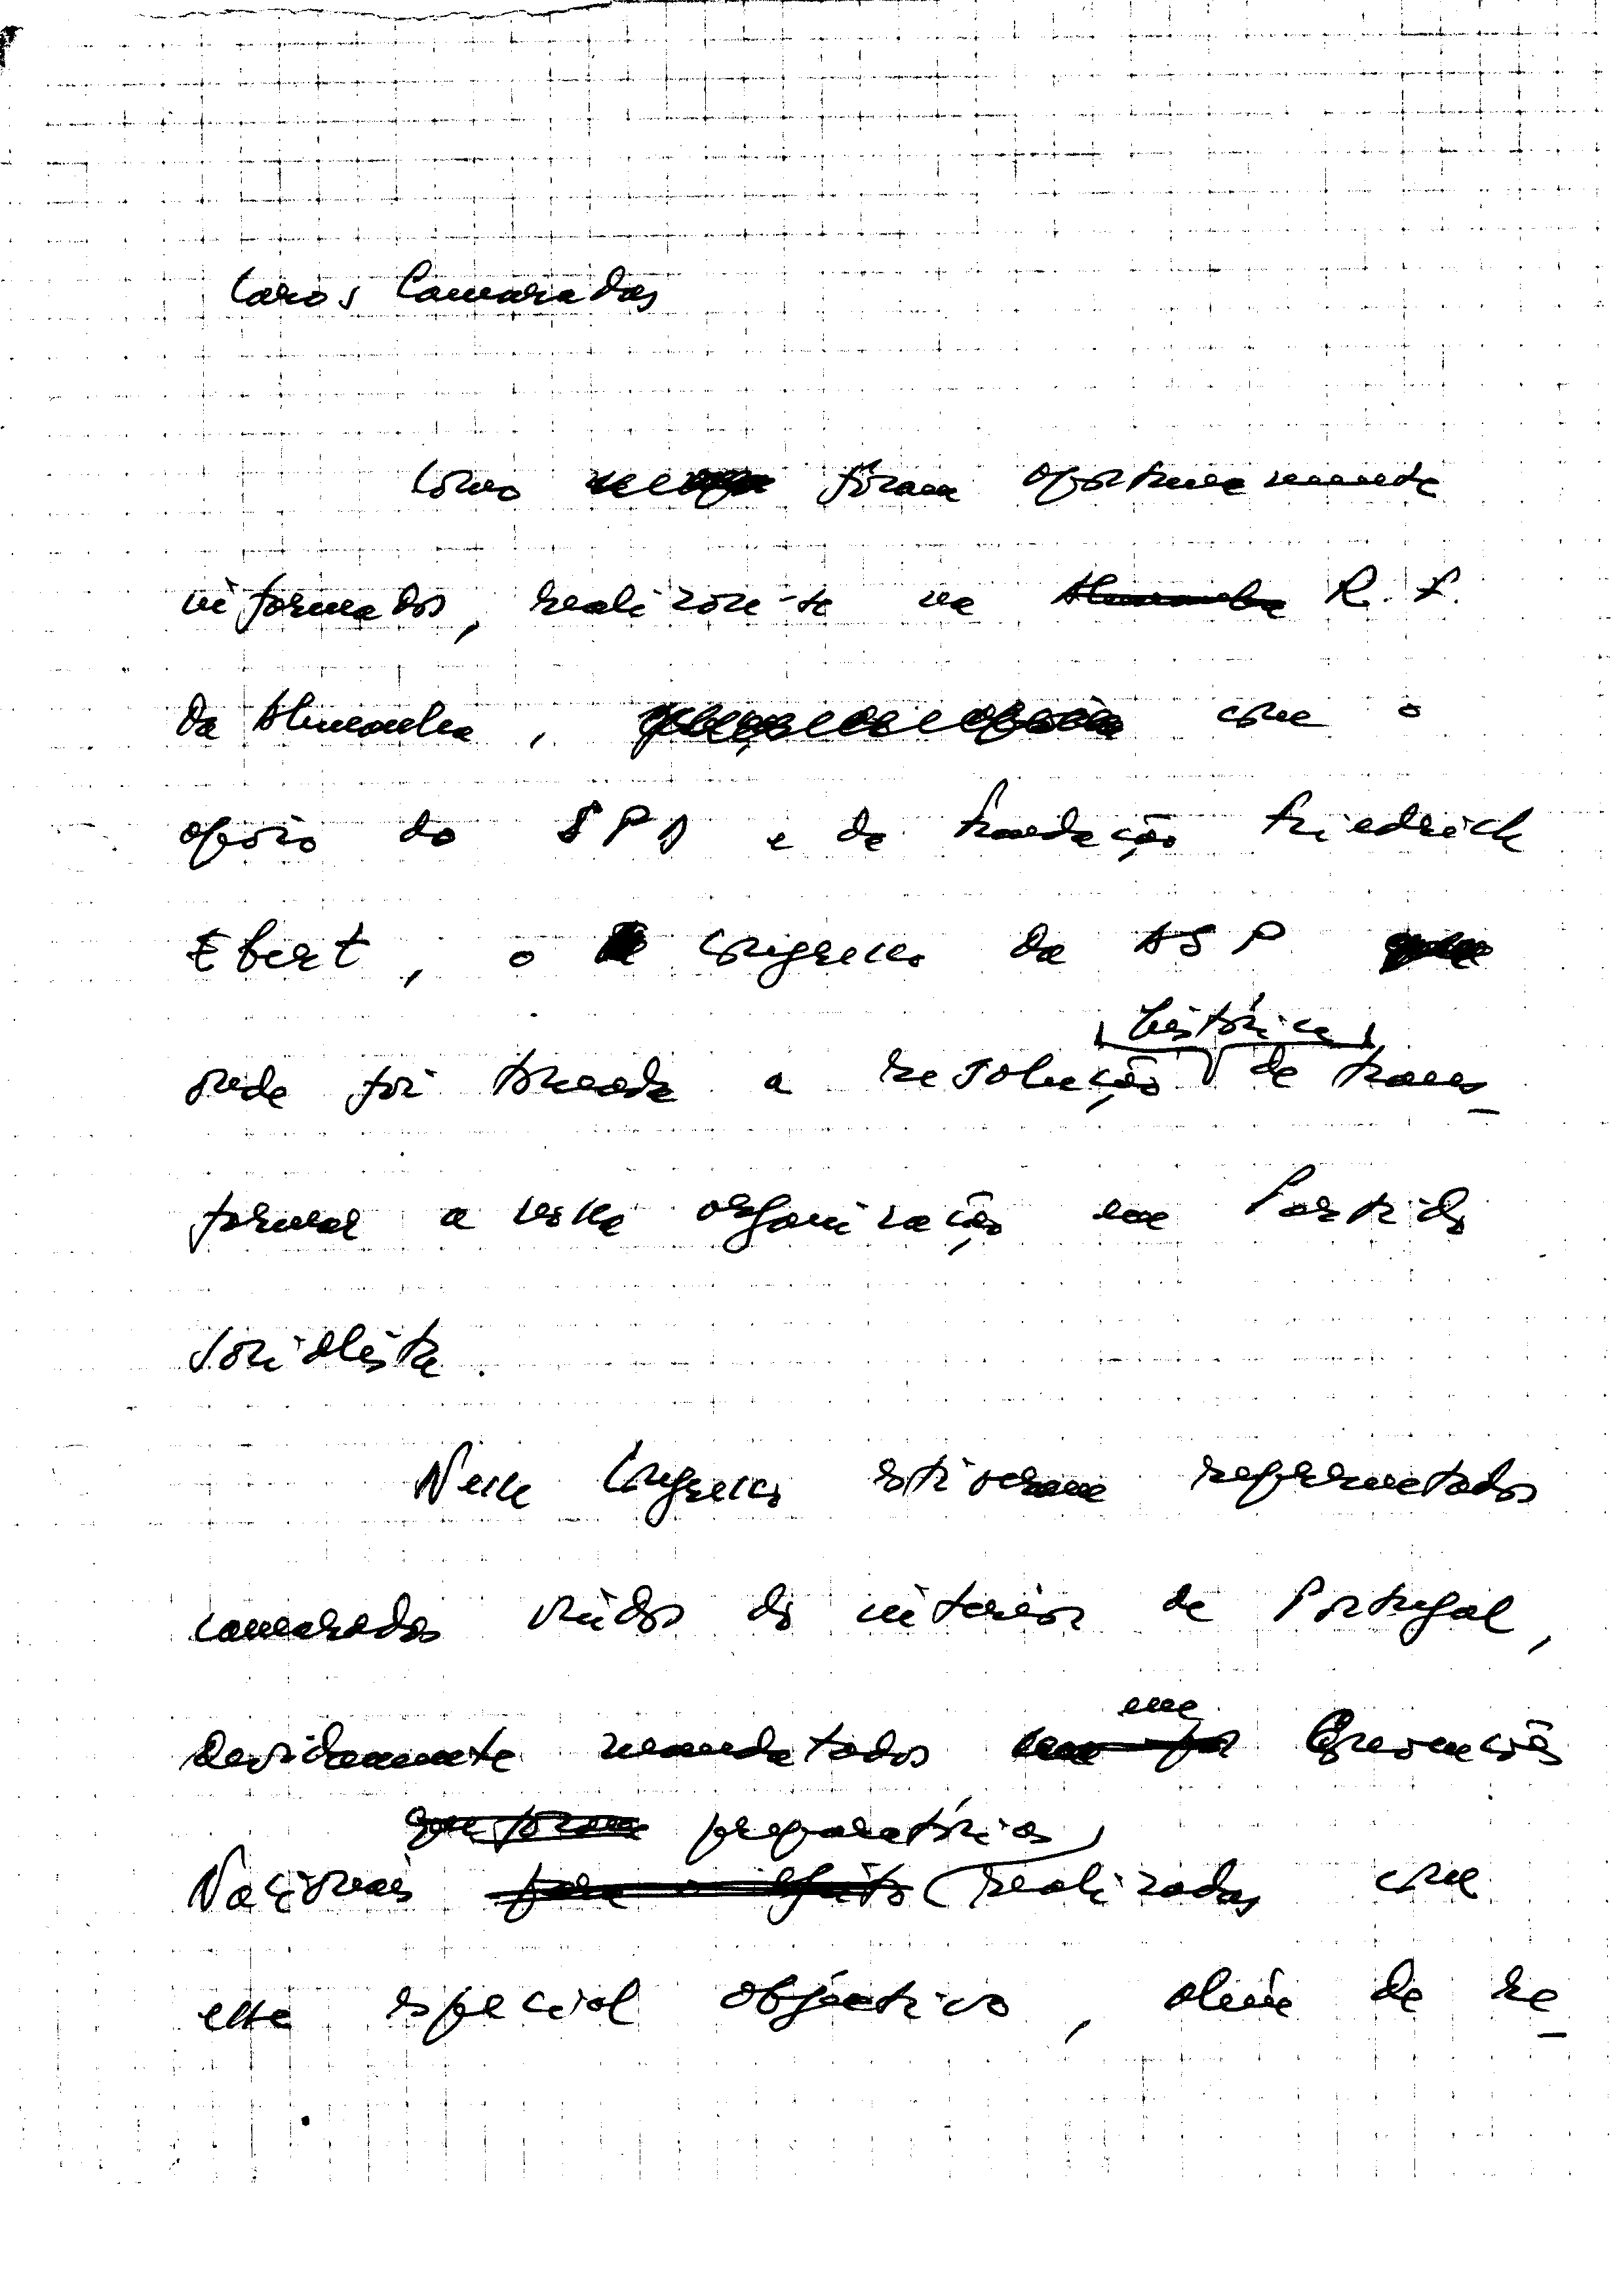 Caros Camaradas
Como foram oportunamente
informados, realizou-se na Alemanha R. F.
da Alemanha, com o
apoio do SPD e da Fundação Friedrich
Ebert, o congresso da ASP
onde foi tomada a resolução histórica de trans_
formar a nossa organização em Partido
Socialista.
Nesse Congresso estiveram representados
camaradas vindos do interior de Portugal,
devidamente mandatados em Convenções
que foram preparatórias
Nacionais para o efeito realizadas com
esse especial objectivo, além de re_